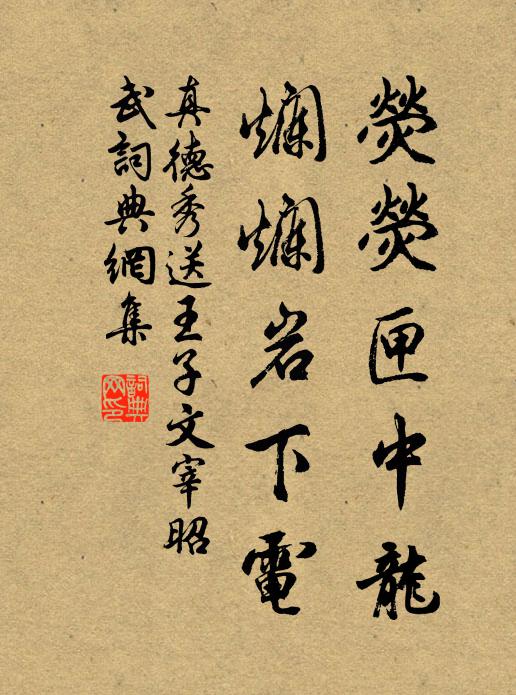 熒熒匣中龍
爛爛岩下電
真德秀送王子文宰昭
武詞典網集
詞典网印